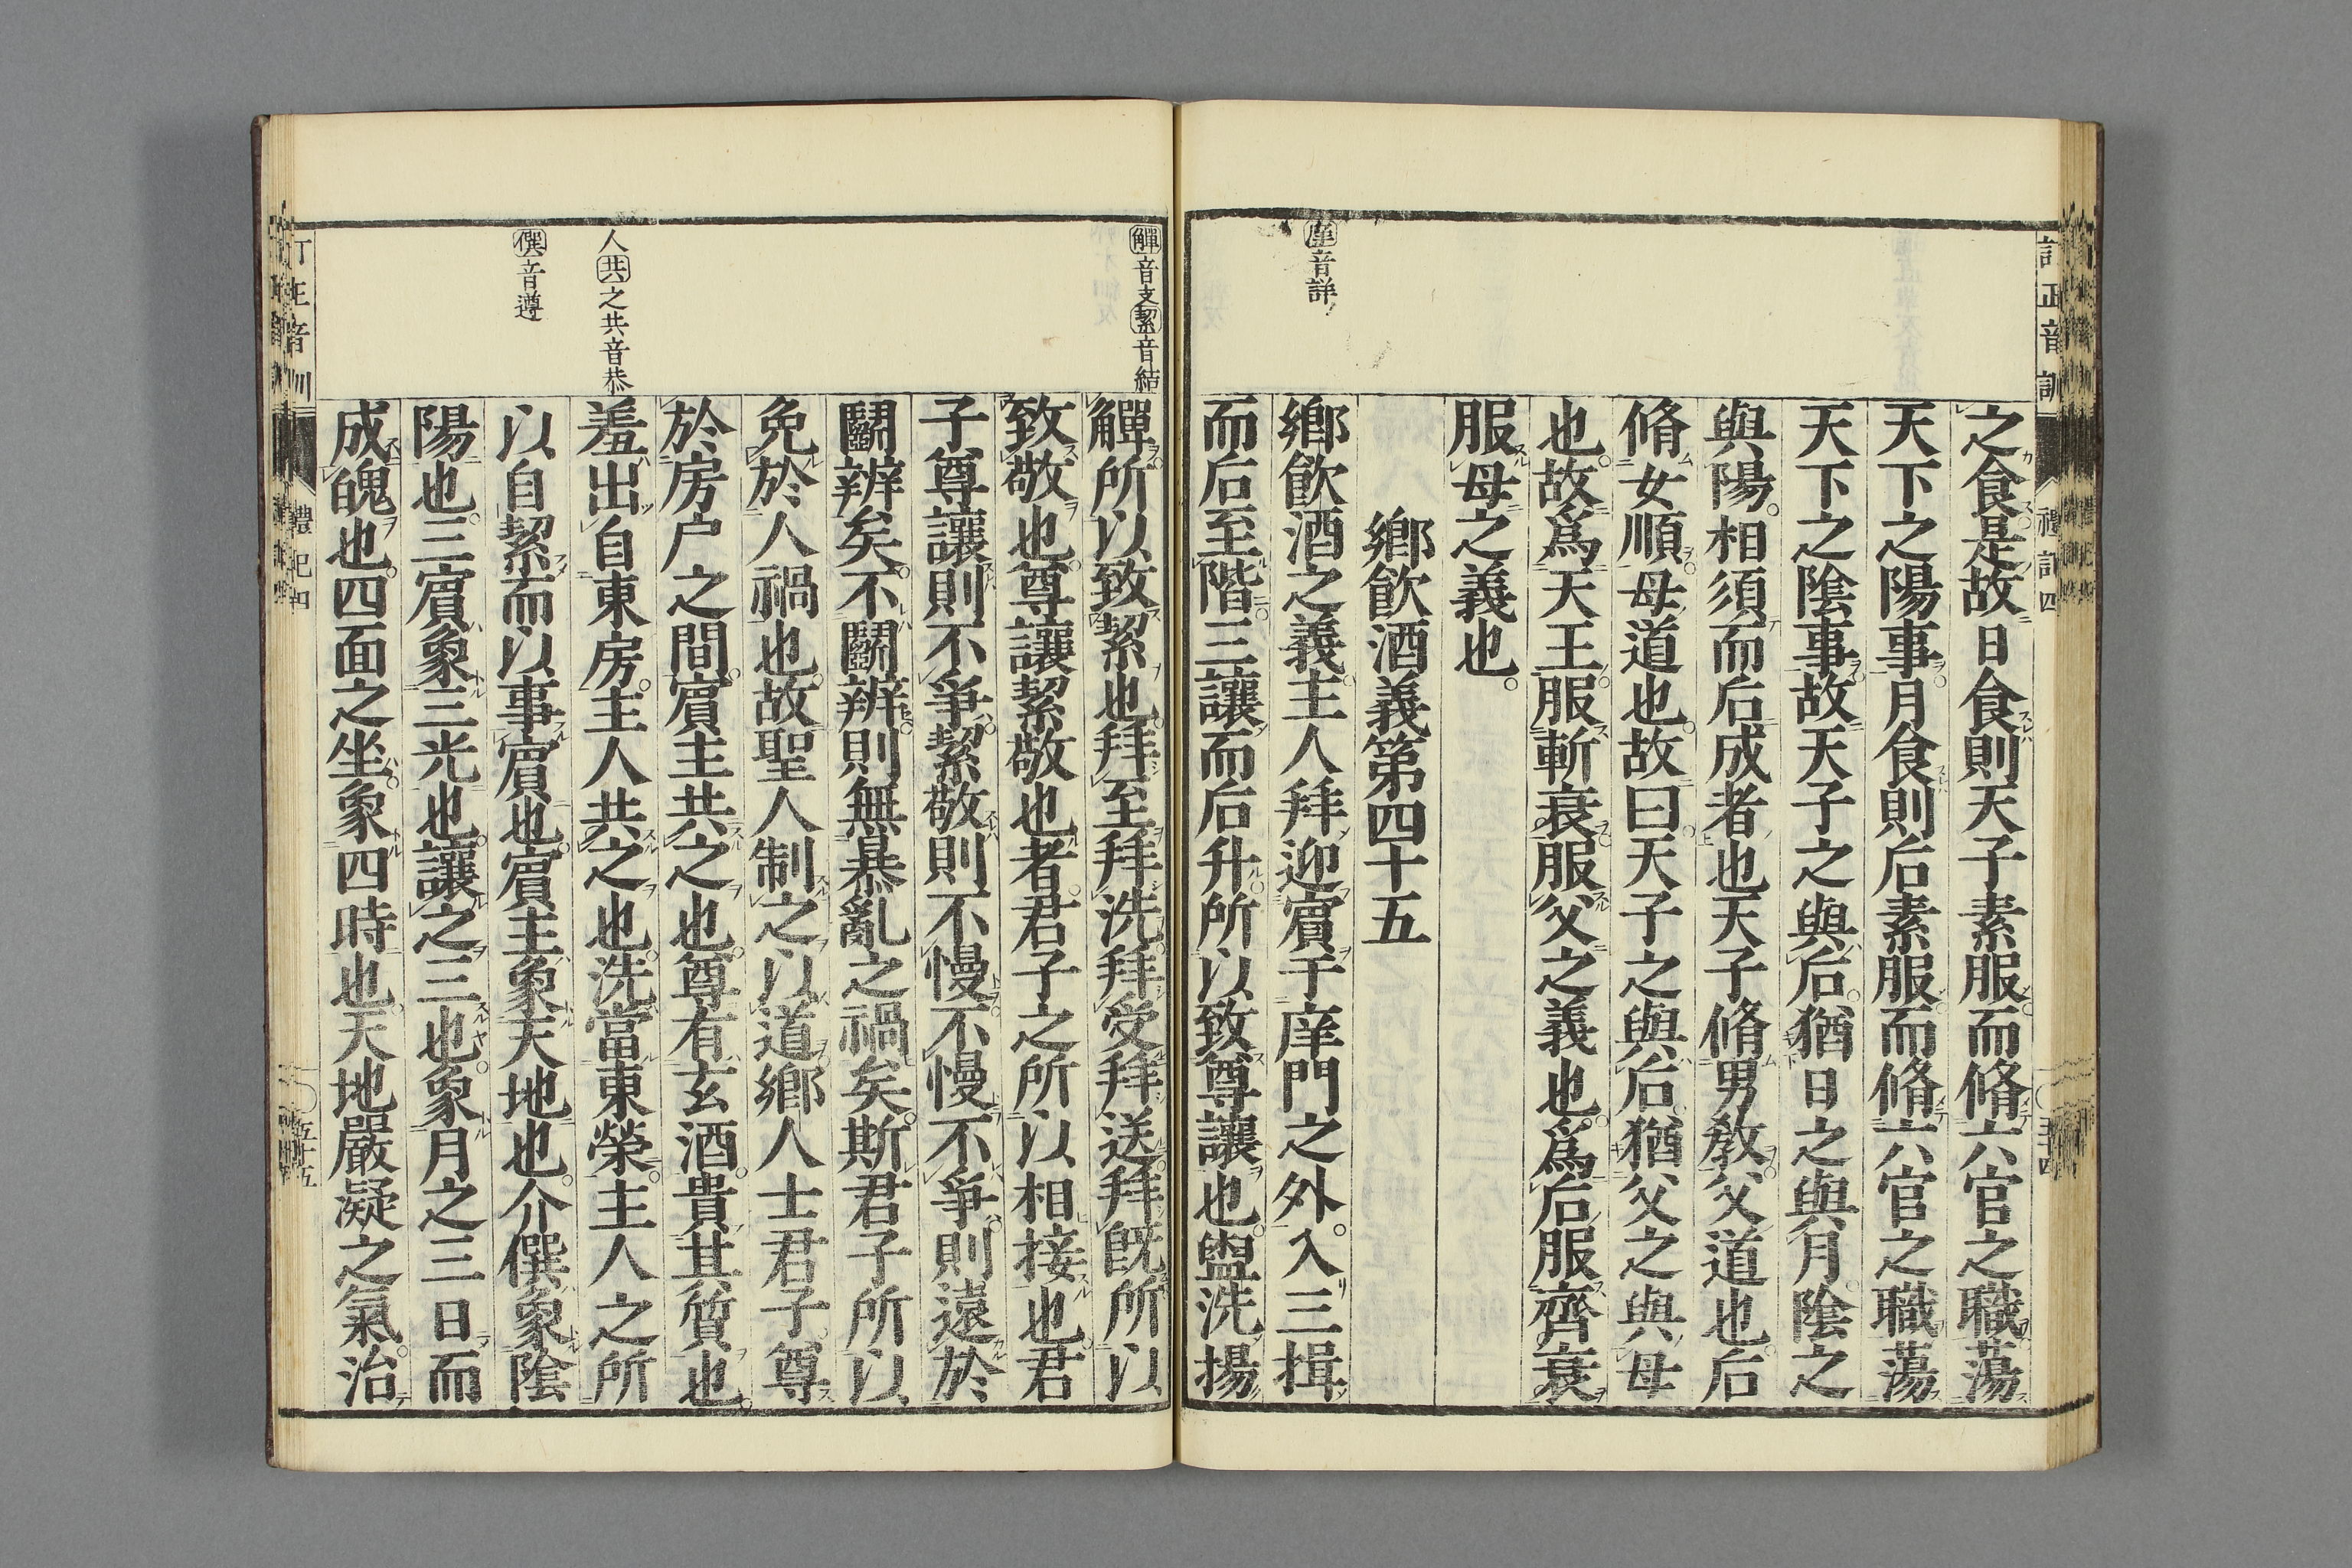 訂正音訓 禮記四
之食是故日食則天子素服而脩六官之職蕩
天下之陽事月食則后素服而脩六官之職蕩
天下之陰事故天子之與后猶日之與月陰之
與陽相須而后成者也天子脩男教父道也后
脩女順母道也故曰天子之與后猶父之與母
也故爲天王服斬衰服父之義也爲后服齊衰
服母之義也
鄉飲酒義第四十五
庠音詳
鄉飲酒之義主人拜迎賓于庠門之外入三揖
而后至階三讓而后升所以致尊讓也盥洗揚
觶音支絜音結
觶所以致絜也拜至拜洗拜受拜送拜旣所以
致敬也尊讓絜敬也者君子之所以相接也君
子尊讓則不爭絜敬則不慢不慢不爭則遠於
鬭辨矣不鬭辨則無暴亂之禍矣斯君子所以
免於人禍也故聖人制之以道鄉人士君子尊
於房户之間賓主共之也尊有玄酒貴其質也
人共之共音恭
羞出自東房主人共之也洗當東榮主人之所
僎音遵
以自絜而以事賓也賓主象天地也介僎象陰
陽也三賓象三光也讓之三也象月之三日而
成魄也四面之坐象四時也天地嚴凝之氣治
訂正音訓 禮記四 五十五